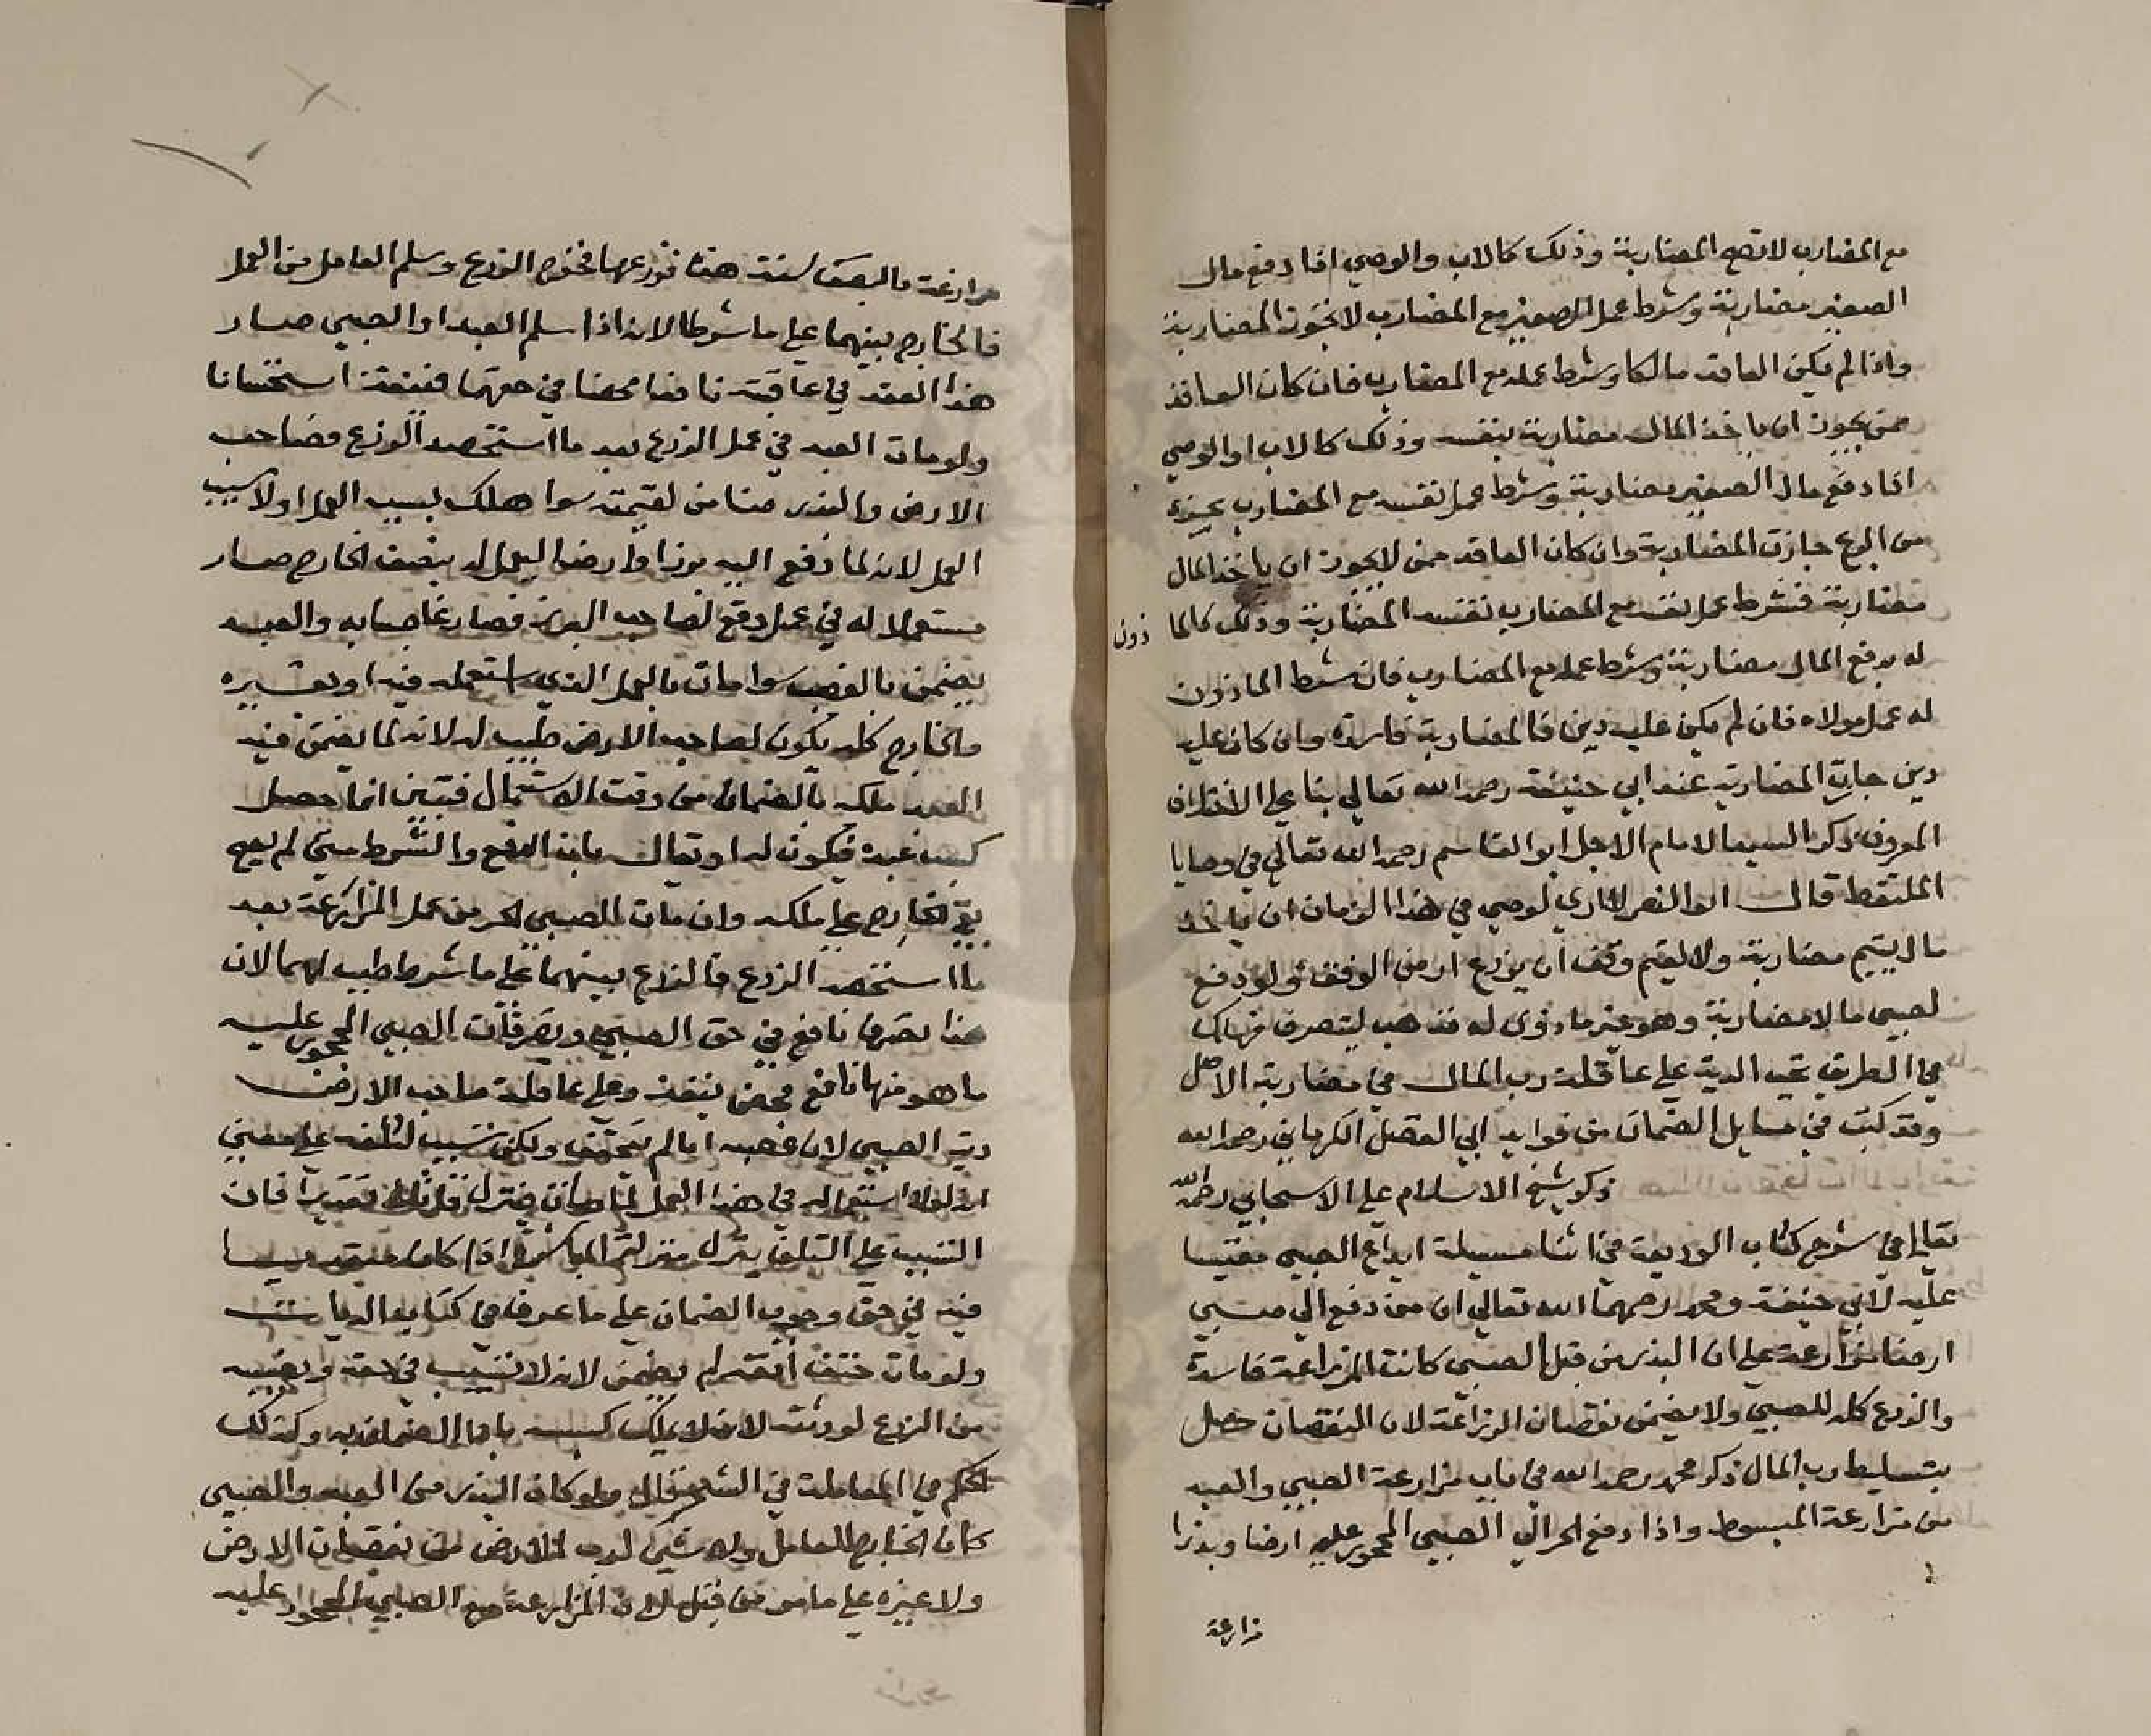 مع المضارب لا تصح المضاربة وذلك كالاب والوصي اذا دفع مال
الصغير مضاربة وشرط عمل الصغير مع المضارب لا تجوز المضاربة
واذا لم يكن العاقد مالكا وشرط عمله مع المضارب فان كان العاقد
ممن يجوز ان ياخذ المال مضاربة بنفسه وذلك كالاب او الوصي
اذا دفع مال الصغير مضاربة وشرط عمل نفسه مع المضارب بجزء
من الربح جازت المضاربة وان كان العاقد ممن لا يجوز ان ياخذ المال
مضاربة فشرط عمل نفسه مع المضارب تفسد المضاربة وذلك كالما ذون
له يدفع المال مضاربة وشرط عمله مع المضارب فان شرط الماذون
له عمل مولاه فان لم يكن عليه دين فالمضاربة فاسدة وان كان عليه
دين جازت المضاربة عند ابي حنيفة رحمه الله تعالي بنا علي الاختلاف
المعروف ذكر السيد الامام الاجل ابو القاسم رحمه الله تعالي في وصايا
الملتقط قال ابو النصر لا اري لوصي في هذا الزمان ان ياخذ
مال يتيم مضاربة ولا لقيم وقف ان يزرع ارض الوقف ولو دفع
لصبي مالا مضاربة وهو غير ماذون له فذهب ليتصرف فهلك
في الطريق تجب الدية علي عاقلة رب المال في مضاربة الاصل
وقد كتبت في مسايل الضمان من فوايد ابي الفضل الكرماني رحمه الله
ذكر شيخ الاسلام علي الاسبيجابي رحمه الله
تعالي في شرح كتاب الوديعة في اثنا مسيلة ايداع الصبي مقيسا
عليه لابي حنيفة ومحمد رحمهما الله تعالي ان من دفع الي صبي
ارضا مزارعة علي ان البذر من قبل الصبي كانت المزارعة فاسدة
والزرع كله للصبي ولا يضمن نقصان الزراعة لان النقصان حصل
بتسليط رب المال ذكر محمد رحمه الله في باب مزارعة الصبي والعبد
من مزارعة المبسوط واذا دفع الحر الي الصبي المحجور عليه ارضا وبذرا
مزارعة
مزارعة بالنصف لسنة هذه فزرعها فخرج الزرع وسلم العامل من العمل
فالخارج بينهما علي ما شرطا لانه اذا سلم العبد او الصبي صار
هذا العقد في عاقبته نافعا محضا في حقهما فننفذه استحسانا
ولو مات العبد في عمل الزرع بعد ما استحصد الزرع فصاحب
الارض والبذر ضامن لقيمته سوا هلك بسبب العمل او لا بسبب
العمل لانه لما دفع اليه بذرا وارضا ليعمل له بنصف الخارج صار
مستعملا له في عمل وقع لصاحب البذر فصار غاصبا به والعبد
يضمن بالغصب سوا مات بالعمل الذي استعمله فيه او بغيره
والخارج كله يكون لصاحب الارض طيب له لانه لما يضمن قيمة
العبد ملكه بالضمان من وقت الاستعمال فتبين انما حصل
كسب عبده فيكون له او يقال بان الدفع والشرط متي لم يصح
بقي الخارج علي ملكه وان مات الصبي الحر من عمل المزارعة بعد
ما استحصد الزرع فالزرع بينهما علي ما شرطا طيب لهما لان
هذا تصرف نافع في حق الصبي وتصرفات الصبي المحجور عليه
ما هو منها نافع محض ينفذ وعلي عاقلة صاحب الارض
دية الصبي لان غصبه اياه لم يتحقق ولكن تسبب لتلفه علي معني
انه لولا استعماله في هذا العمل لما مات فينزل قاتلا له تقديرا فان
التسبب علي التلف ينزل منزلة المباشرة اذا كان متعديا
فيه في حق وجوب الضمان علي ما عرف في كتاب الديات
ولو مات حتف انفه لم يضمن لانه لا تسبيب في حقه ونصيبه
من الزرع لورثته لانه لا يملك كسبه باداء الضمان به وكذلك
الحكم في المعاملة في الشجر قال ولو كان البذر من العبد والصبي
كان الخارج للعامل ولا شي لرب الارض من نقصان الارض
ولا غيره علي ما مر من قبل لان المزارعة مع الصبي المحجور عليه